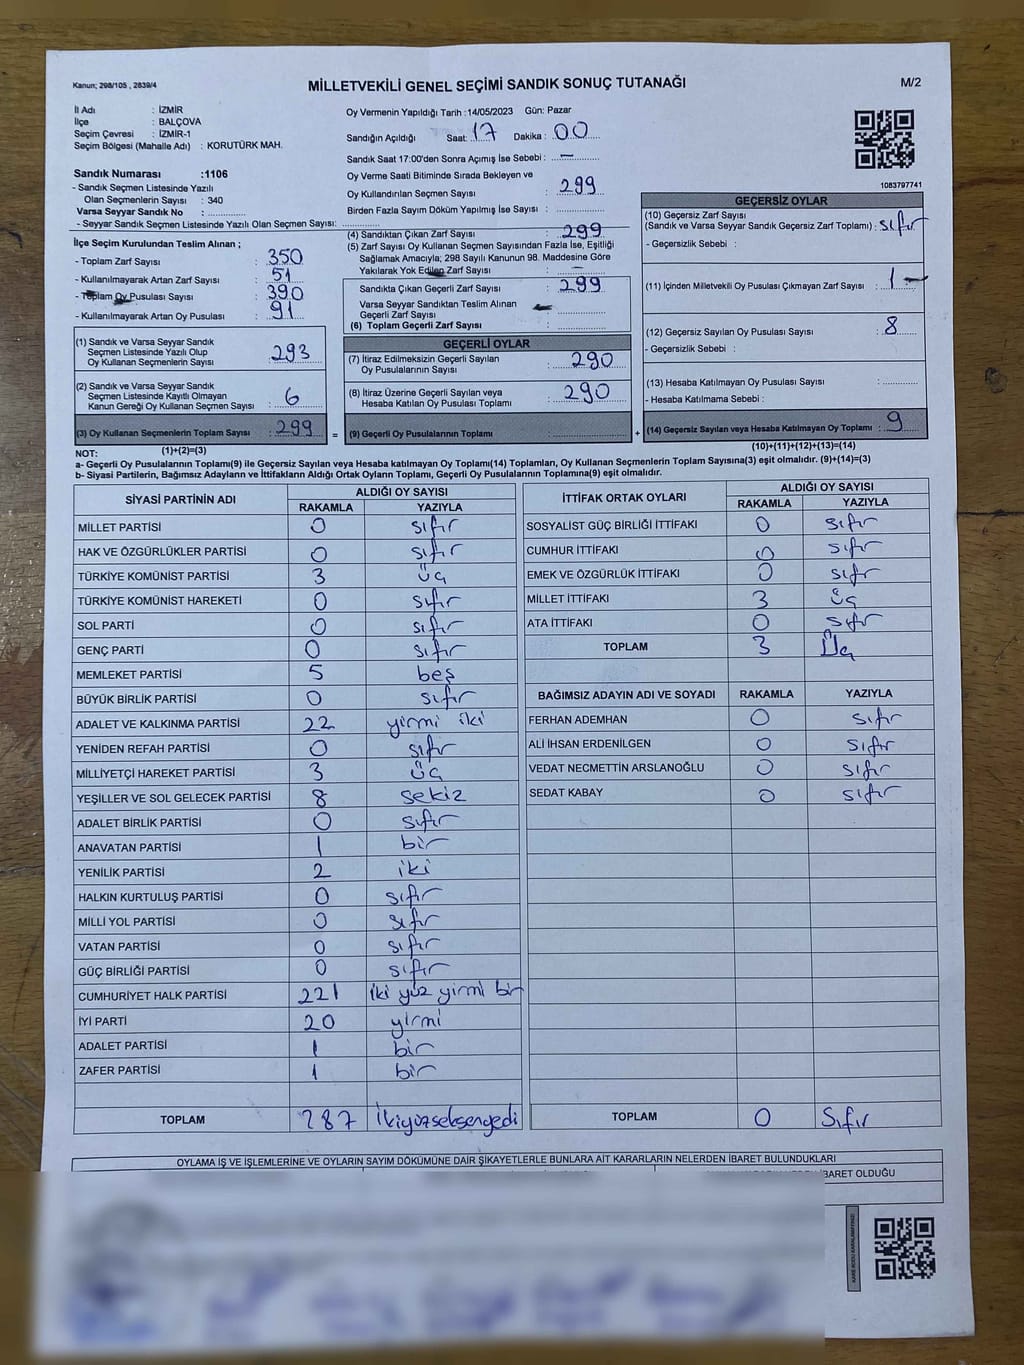 Kanun; 298/105 , 2839/4
MİLLETVEKİLİ GENEL SEÇİMİ SANDIK SONUÇ TUTANAĞI
M/2
İl Adı : İZMİR
İlçe : BALÇOVA
Seçim Çevresi : İZMİR-1
Seçim Bölgesi (Mahalle Adı) : KORUTÜRK MAH.
Sandık Numarası :1106
- Sandık Seçmen Listesinde Yazılı
Olan Seçmenlerin Sayısı : 340
Varsa Seyyar Sandık No : ..............
- Seyyar Sandık Seçmen Listesinde Yazılı Olan Seçmen Sayısı: ..............
Oy Vermenin Yapıldığı Tarih :14/05/2023 Gün: Pazar
Sandığın Açıldığı Saat: 17 Dakika : 00
Sandık Saat 17:00'den Sonra Açımış İse Sebebi : —
Oy Verme Saati Bitiminde Sırada Bekleyen ve
Oy Kullandırılan Seçmen Sayısı : 299
Birden Fazla Sayım Döküm Yapılmış İse Sayısı : ..............
1083797741
İlçe Seçim Kurulundan Teslim Alınan ;
- Toplam Zarf Sayısı : 350
- Kullanılmayarak Artan Zarf Sayısı : 51
- Toplam Oy Pusulası Sayısı : 390
- Kullanılmayarak Artan Oy Pusulası : 91
(1) Sandık ve Varsa Seyyar Sandık
Seçmen Listesinde Yazılı Olup
Oy Kullanan Seçmenlerin Sayısı : 293
(2) Sandık ve Varsa Seyyar Sandık
Seçmen Listesinde Kayıtlı Olmayan
Kanun Gereği Oy Kullanan Seçmen Sayısı : 6
(3) Oy Kullanan Seçmenlerin Toplam Sayısı : 299 =
(1)+(2)=(3)
(4) Sandıktan Çıkan Zarf Sayısı : 299
(5) Zarf Sayısı Oy Kullanan Seçmen Sayısından Fazla İse, Eşitliği
Sağlamak Amacıyla; 298 Sayılı Kanunun 98. Maddesine Göre
Yakılarak Yok Edilen Zarf Sayısı : —
Sandıkta Çıkan Geçerli Zarf Sayısı : 299
Varsa Seyyar Sandıktan Teslim Alınan
Geçerli Zarf Sayısı : ..............
(6) Toplam Geçerli Zarf Sayısı : ..............
GEÇERLİ OYLAR
(7) İtiraz Edilmeksizin Geçerli Sayılan
Oy Pusulalarının Sayısı : 290
(8) İtiraz Üzerine Geçerli Sayılan veya
Hesaba Katılan Oy Pusulası Toplamı : 290
(9) Geçerli Oy Pusulalarının Toplamı : .............. +
GEÇERSİZ OYLAR
(10) Geçersiz Zarf Sayısı
(Sandık ve Varsa Seyyar Sandık Geçersiz Zarf Toplamı) : sıfır
- Geçersizlik Sebebi :
(11) İçinden Milletvekili Oy Pusulası Çıkmayan Zarf Sayısı : 1 —
(12) Geçersiz Sayılan Oy Pusulası Sayısı : 8
- Geçersizlik Sebebi :
(13) Hesaba Katılmayan Oy Pusulası Sayısı : ..............
- Hesaba Katılmama Sebebi :
(14) Geçersiz Sayılan veya Hesaba Katılmayan Oy Toplamı : 9
(10)+(11)+(12)+(13)=(14)
NOT:
a- Geçerli Oy Pusulalarının Toplamı(9) ile Geçersiz Sayılan veya Hesaba katılmayan Oy Toplamı(14) Toplamları, Oy Kullanan Seçmenlerin Toplam Sayısına(3) eşit olmalıdır. (9)+(14)=(3)
b- Siyasi Partilerin, Bağımsız Adayların ve İttifakların Aldığı Ortak Oyların Toplamı, Geçerli Oy Pusulalarının Toplamına(9) eşit olmalıdır.
SİYASİ PARTİNİN ADI ALDIĞI OY SAYISI
RAKAMLA YAZIYLA
MİLLET PARTİSİ 0 sıfır
HAK VE ÖZGÜRLÜKLER PARTİSİ 0 sıfır
TÜRKİYE KOMÜNİST PARTİSİ 3 üç
TÜRKİYE KOMÜNİST HAREKETİ 0 sıfır
SOL PARTİ 0 sıfır
GENÇ PARTİ 0 sıfır
MEMLEKET PARTİSİ 5 beş
BÜYÜK BİRLİK PARTİSİ 0 sıfır
ADALET VE KALKINMA PARTİSİ 22 yirmi iki
YENİDEN REFAH PARTİSİ 0 sıfır
MİLLİYETÇİ HAREKET PARTİSİ 3 üç
YEŞİLLER VE SOL GELECEK PARTİSİ 8 sekiz
ADALET BİRLİK PARTİSİ 0 sıfır
ANAVATAN PARTİSİ 1 bir
YENİLİK PARTİSİ 2 iki
HALKIN KURTULUŞ PARTİSİ 0 sıfır
MİLLİ YOL PARTİSİ 0 sıfır
VATAN PARTİSİ 0 sıfır
GÜÇ BİRLİĞİ PARTİSİ 0 sıfır
CUMHURİYET HALK PARTİSİ 221 iki yüz yirmi bir
İYİ PARTİ 20 yirmi
ADALET PARTİSİ 1 bir
ZAFER PARTİSİ 1 bir
TOPLAM 287 ikiyüzseksenyedi
İTTİFAK ORTAK OYLARI ALDIĞI OY SAYISI
RAKAMLA YAZIYLA
SOSYALİST GÜÇ BİRLİĞİ İTTİFAKI 0 sıfır
CUMHUR İTTİFAKI 0 sıfır
EMEK VE ÖZGÜRLÜK İTTİFAKI 0 sıfır
MİLLET İTTİFAKI 3 üç
ATA İTTİFAKI 0 sıfır
TOPLAM 3 Üç
BAĞIMSIZ ADAYIN ADI VE SOYADI RAKAMLA YAZIYLA
FERHAN ADEMHAN 0 sıfır
ALİ İHSAN ERDENİLGEN 0 sıfır
VEDAT NECMETTİN ARSLANOĞLU 0 sıfır
SEDAT KABAY 0 sıfır
TOPLAM 0 Sıfır
OYLAMA İŞ VE İŞLEMLERİNE VE OYLARIN SAYIM DÖKÜMÜNE DAİR ŞİKAYETLERLE BUNLARA AİT KARARLARIN NELERDEN İBARET BULUNDUKLARI
İBARET OLDUĞU